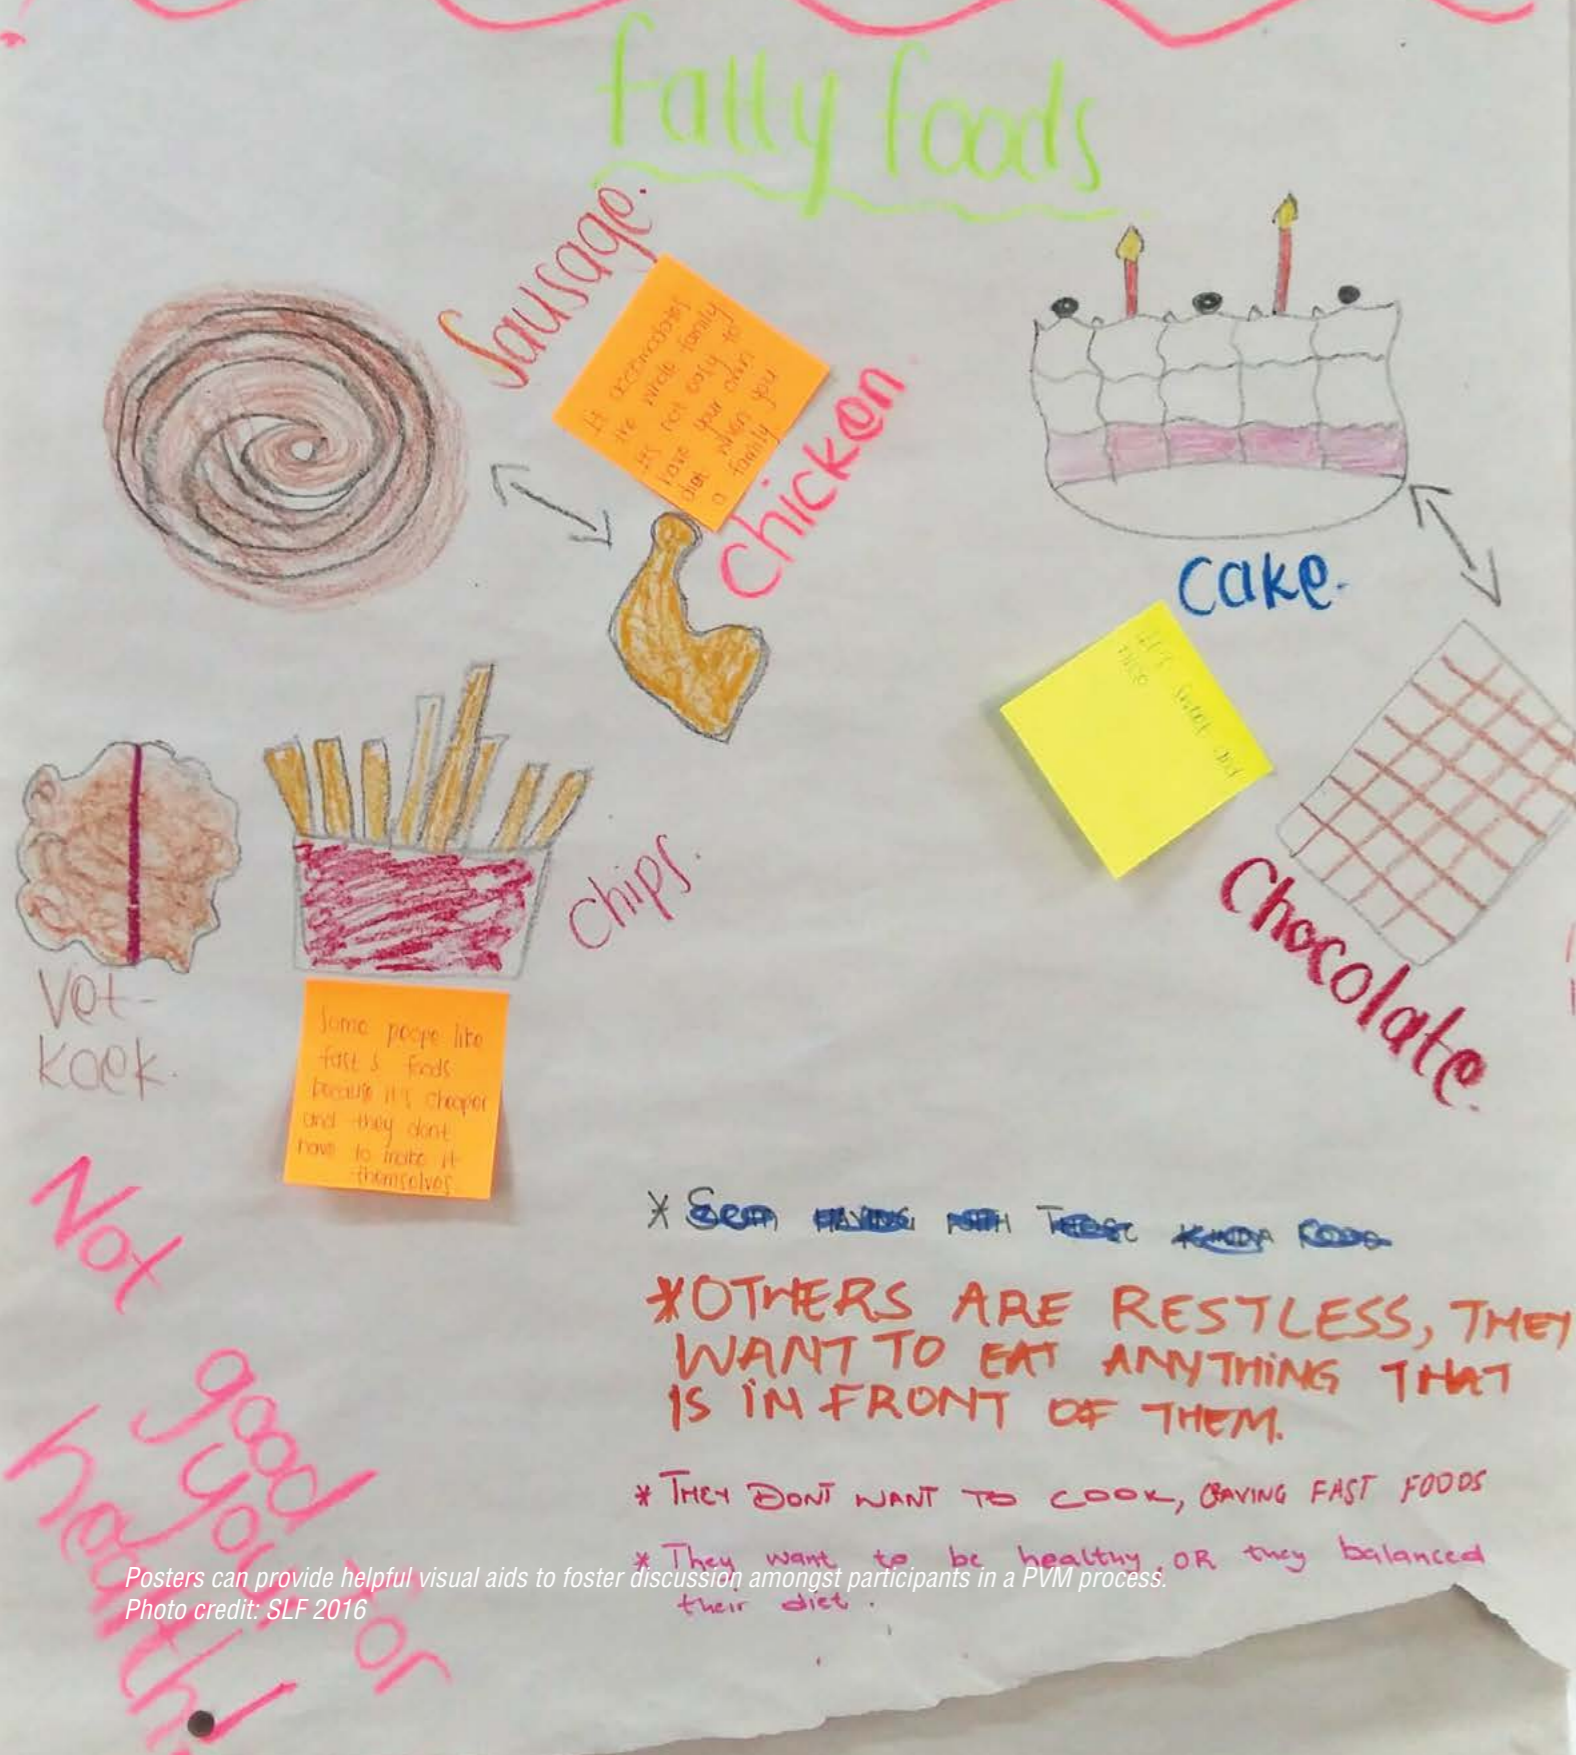 Fatty foods
Sausage.
It accomodates
the whole family
It's not easy to
have your own
diet when you
a family
Chicken.
Cake.
It's sweet and
nice
Chocolate.
Chips.
Vet-
koek.
Some peope like
fast s foods
because it's cheaper
and they dont
have to make it
themselves
Not
good
for
your
health!
* OTHERS ARE RESTLESS, THEY
WANT TO EAT ANYTHING THAT
IS IN FRONT OF THEM.
* THEY DONT WANT TO COOK, CRAVING FAST FOODS
* They want to be healthy, OR they balanced
their diet.
Posters can provide helpful visual aids to foster discussion amongst participants in a PVM process.
Photo credit: SLF 2016